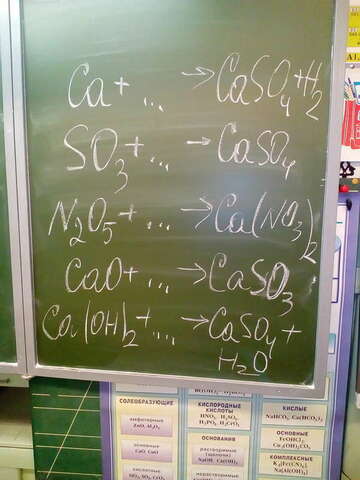 Ca + ... → CaSO₄ + H₂
SO₃ + ... → CaSO₄
N₂O₅ + ... → Ca(NO₃)₂
CaO + ... → CaSO₃
Ca(OH)₂ + .... → CaSO₄ +
H₂O
СОЛЕОБРАЗУЮЩИЕ
амфотерные
ZnO, Al₂O₃
основные
CaO, CuO
кислотные
КИСЛОРОДНЫЕ
КИСЛОТЫ
HNO₃, H₂SO₄,
ОСНОВАНИЯ
растворимые
NaOH, Ca(OH)₂
нерастворимые
КИСЛЫЕ
NaHCO₃, Ca(HCO₃)₂
ОСНОВНЫЕ
КОМПЛЕКСНЫЕ